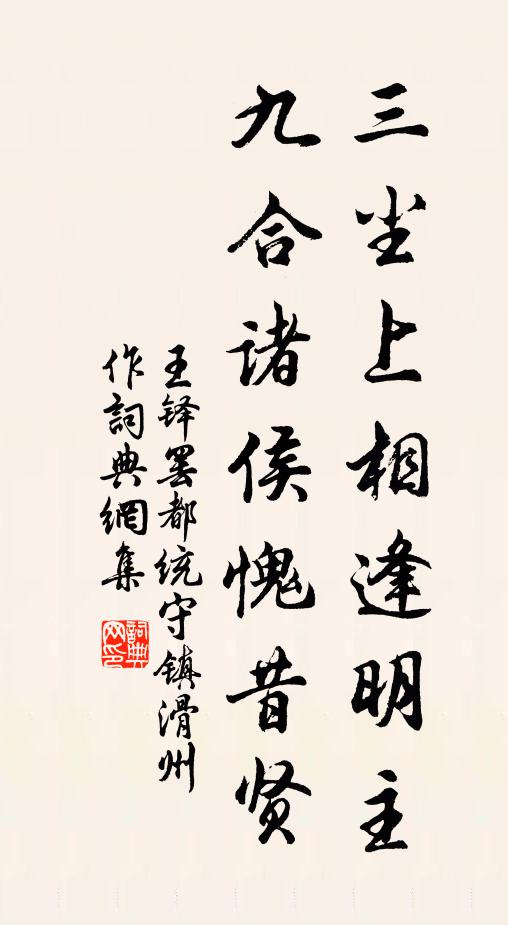 三坐上相逢明主
九合诸侯愧昔贤
王铎罢都统守镇滑州
作詞典網集
詞典网印